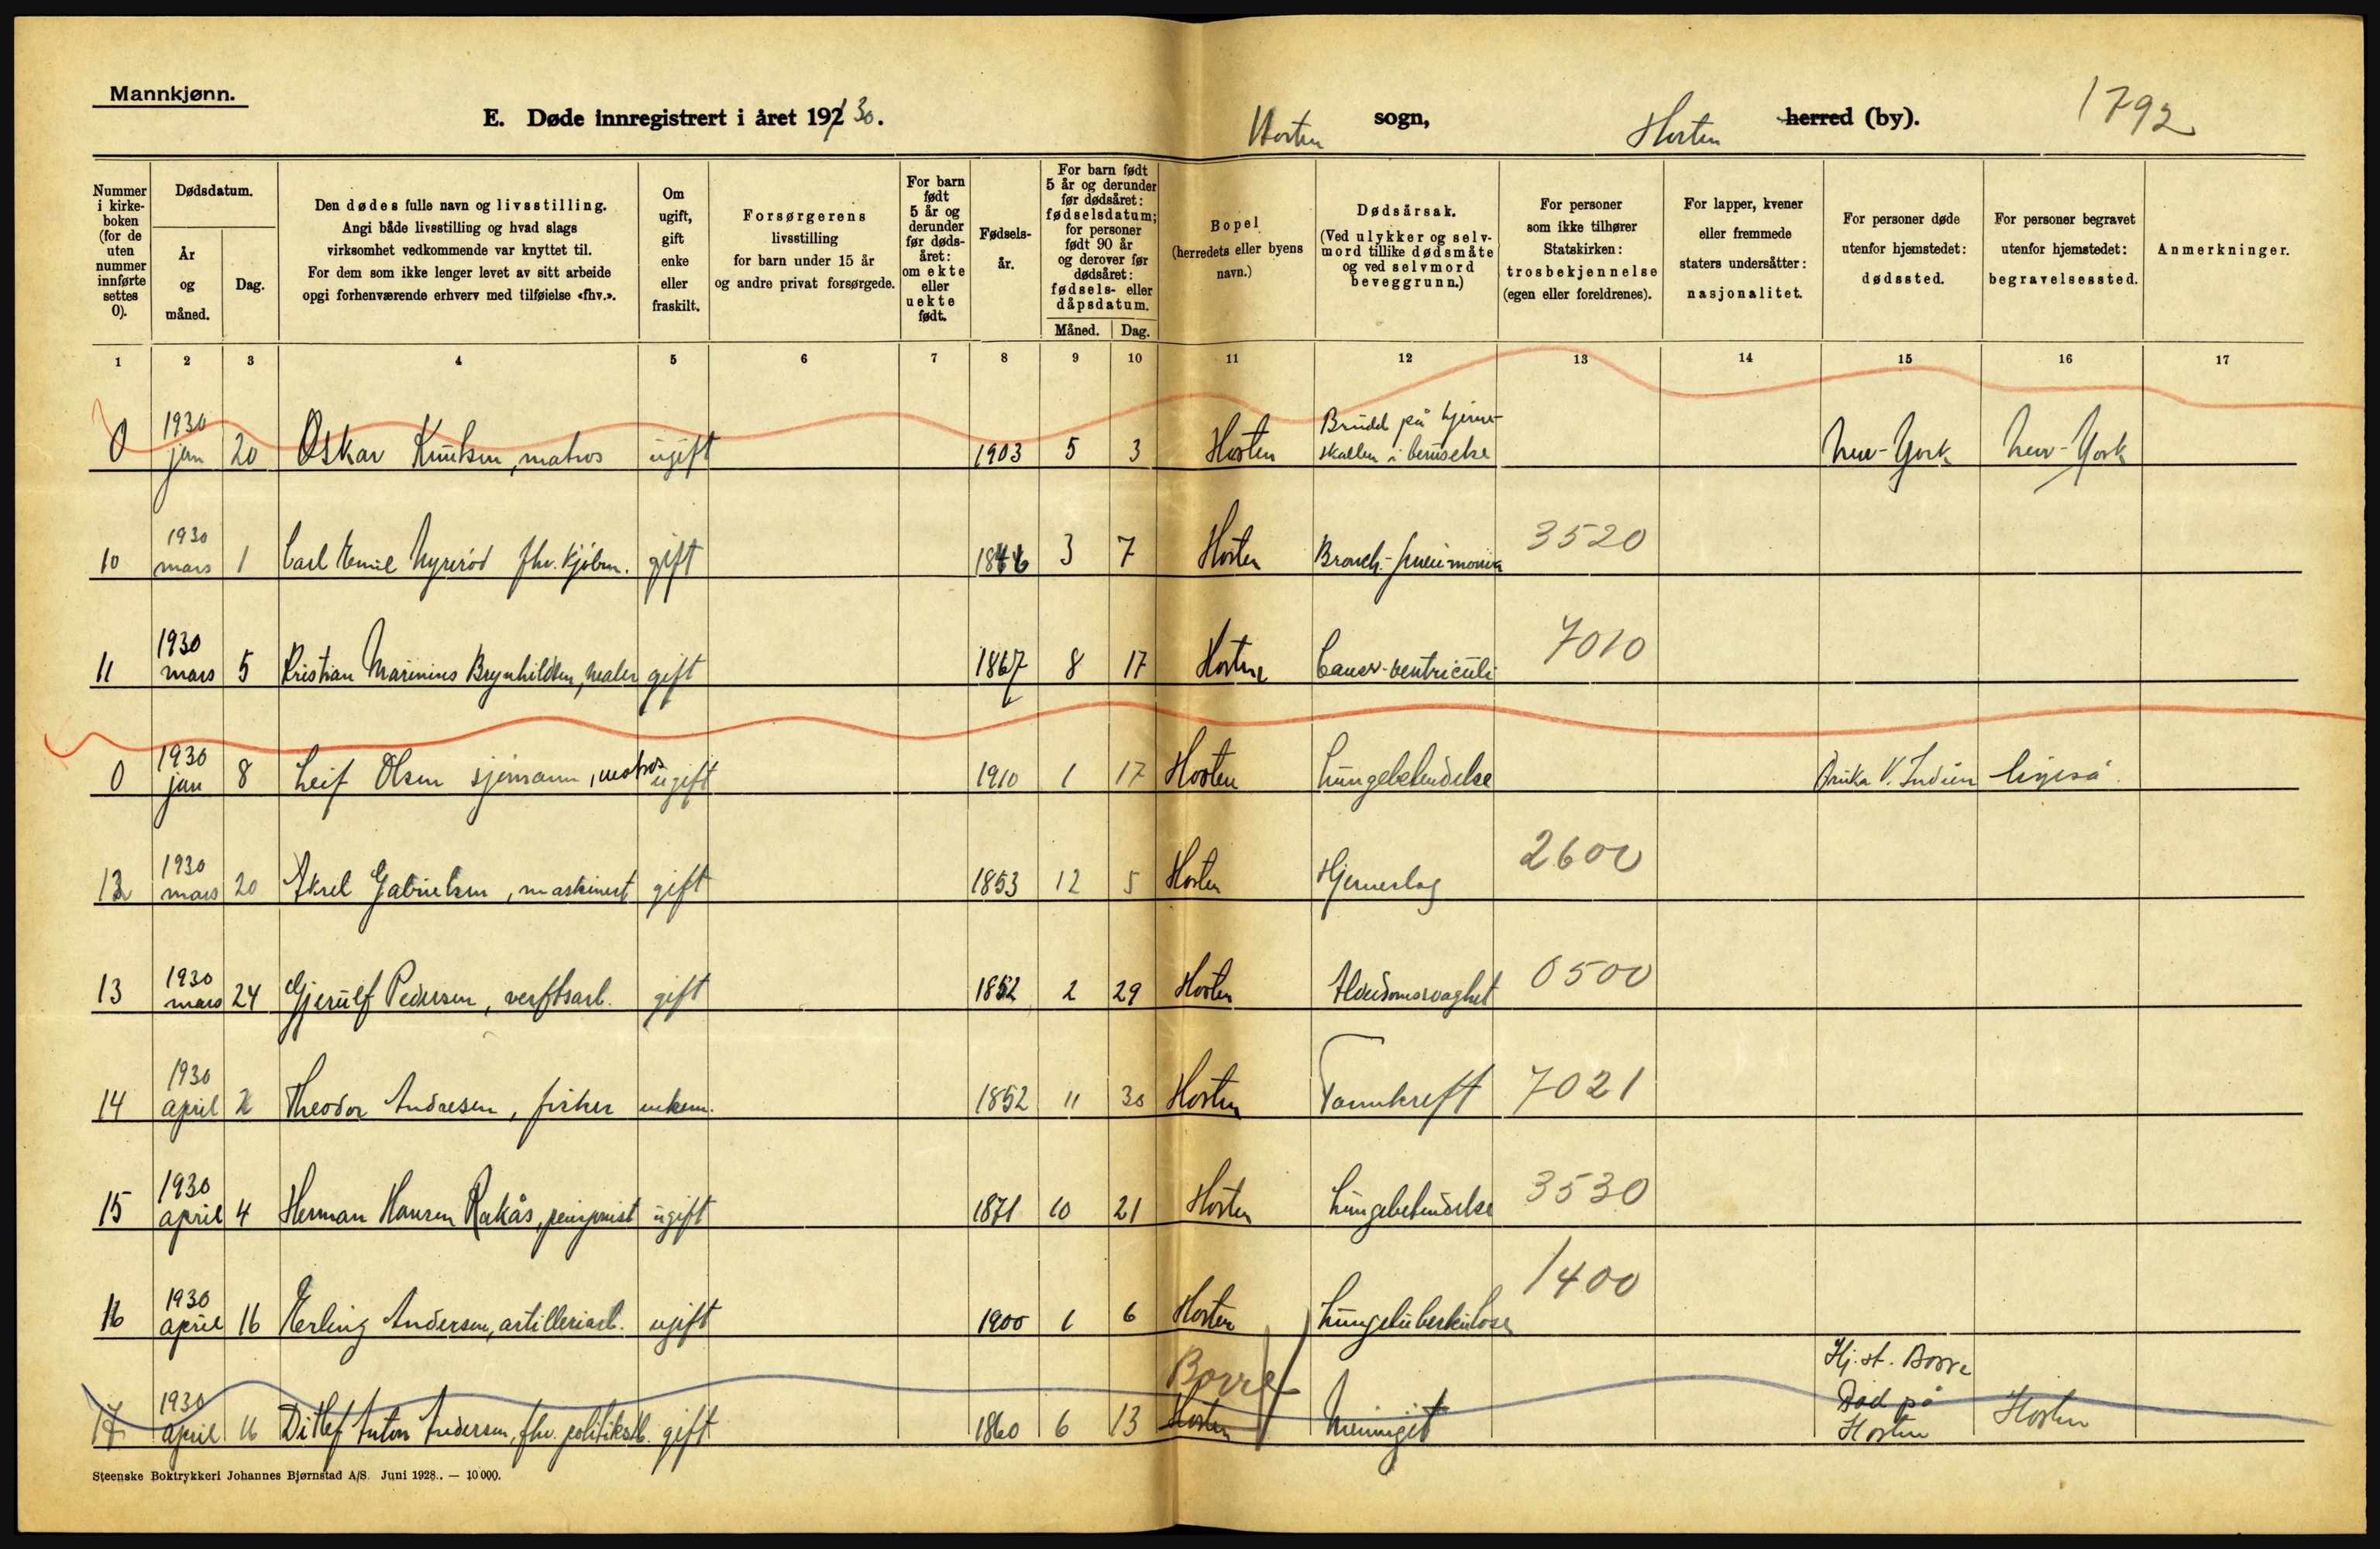 Mannkjønn.
E. Døde innregistrert i året 192 30.
Horten sogn, Horten herred (by). 1792
Nummer i kirkeboken (for de uten nummer innførte settes 0).
Dødsdatum.
År og måned.
Dag.
Den dødes fulle navn og livsstilling.
Angi både livsstilling og hvad slags
virksomhet vedkommende var knyttet til.
For dem som ikke lenger levet av sitt arbeide
opgi forhenværende erhverv med tilføielse «fhv.».
Om ugift, gift enke eller fraskilt.
Forsørgerens
livsstilling
for barn under 15 år
og andre privat forsørgede.
For barn født 5 år og derunder før dødsåret: om ekte eller uekte født.
Fødselsår.
For barn født 5 år og derunder før dødsåret: fødselsdatum; for personer født 90 år og derover før dødsåret: fødsels- eller dåpsdatum.
Måned. Dag.
Bopel
(herredets eller byens
navn.)
Dødsårsak.
(Ved ulykker og selvmord tillike dødsmåte og ved selvmord beveggrunn.)
For personer
som ikke tilhører
Statskirken:
trosbekjennelse
(egen eller foreldrenes).
For lapper, kvener
eller fremmede
staters undersåtter:
nasjonalitet.
For personer døde
utenfor hjemstedet:
dødssted.
For personer begravet
utenfor hjemstedet:
begravelsessted.
Anmerkninger.
1 2 3 4 5 6 7 8 9 10 11 12 13 14 15 16 17
0 1930 jan 20 Oskar Knutsen, matros ugift 1903 5 3 Horten Brudd på hjerneskallen i beruselse New-York New-York
10 1930 mars 1 Carl Emil Nyrerød fhv. kjøbm. gift 1846 3 7 Horten Bronch.-pneumonia 3520
11 1930 mars 5 Kristian Marinius Brynhildsen, maler gift 1867 8 17 Horten Cancer ventriculi 7010
0 1930 jan 8 Leif Olsen sjømann, matros ugift 1910 1 17 Horten Lungebetendelse V. Indien ligeså.
12 1930 mars 20 Aksel Gabrielsen, maskinist gift 1853 12 5 Horten Hjerneslag 2600
13 1930 mars 24 Gjerulf Pedersen, verftsarb. gift 1852 2 29 Horten Alderdomssvaghet 0500
14 1930 april 2 Theodor Andresen, fisker enkem. 1852 11 30 Horten Tarmkreft 7021
15 1930 april 4 Herman Hansen Rakås, pensjonist ugift 1871 10 21 Horten Lungebetendelse 3530
16 1930 april 16 Erling Andersen, artilleriarb. ugift 1900 1 6 Horten Lungetuberkulose 1400
17 1930 april 16 Ditlef Anton Andersen, fhv. gift 1860 6 13 Borre Horten Meningit Hj.st. Borre Død på Horten Horten
Steenske Boktrykkeri Johannes Bjørnstad A/S. Juni 1928. — 10 000.